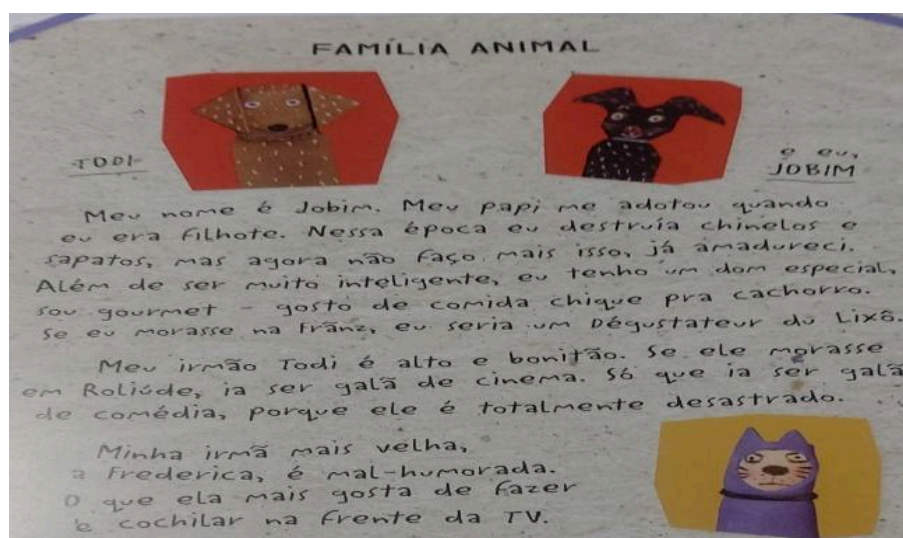 FAMÍLIA ANIMAL
TODI
e eu,
JOBIM
Meu nome é Jobim. Meu papi me adotou quando
eu era filhote. Nessa época eu destruía chinelos e
sapatos, mas agora não faço mais isso, já amadureci.
Além de ser muito inteligente, eu tenho um dom especial,
sou gourmet - gosto de comida chique pra cachorro.
Se eu morasse na Franz, eu seria um Dégustateur du Lixô.
Meu irmão Todi é alto e bonitão. Se ele morasse
em Roliúde, ia ser galã de cinema. Só que ia ser galã
de comédia, porque ele é totalmente desastrado.
Minha irmã mais velha,
a Frederica, é mal-humorada.
O que ela mais gosta de fazer
é cochilar na frente da TV.